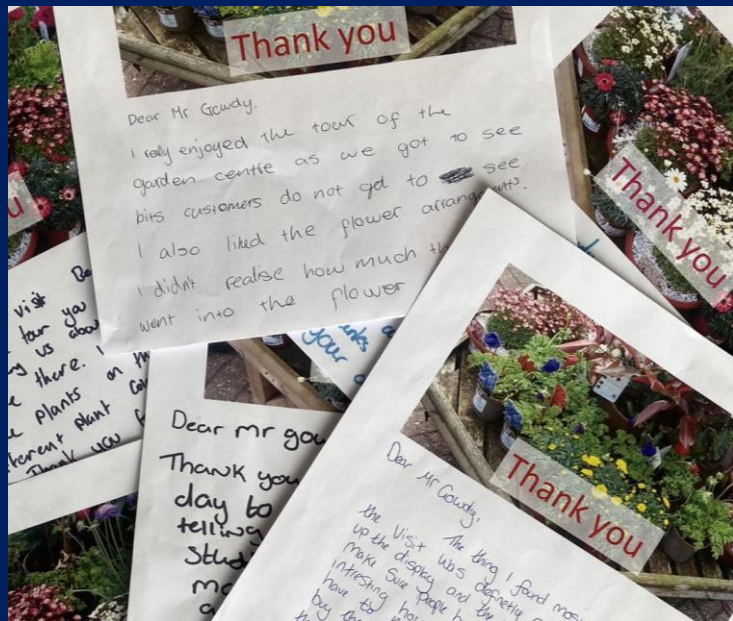 Thank you
Dear Mr Gowdy.
I really enjoyed the tour of the
garden centre as we got to see
bits customers do not get to see.
I also liked the flower arrangements.
I didn't realise how much
went into the flower
Thank you
u
visit
tour you
us about
there.
plants on
plant
Thank you
your
Dear mr
Thank you
day to
telling
Thank you
Dear Mr Gowdy,
The thing I found
the visit was
up the display and the
make sure people
have to
buy